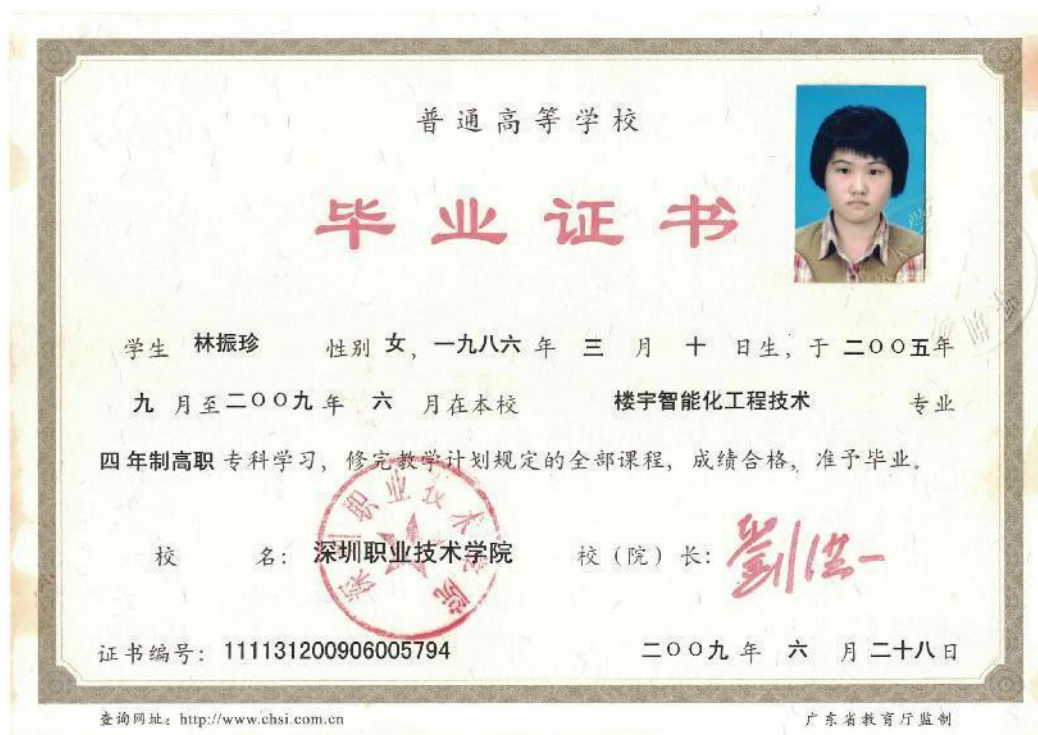 普通高等学校
毕业证书
学生 林振珍 性别 女，一九八六 年 三 月 十 日生，于 二〇〇五年
九 月至二〇〇九年 六 月在本校 楼宇智能化工程技术 专业
四年制高职 专科学习，修完教学计划规定的全部课程，成绩合格，准予毕业。
校 名：深圳职业技术学院 校（院）长：劉洪一
深圳职业技术学院
证书编号：111131200906005794 二〇〇九 年 六 月 二十八日
查询网址：http://www.chsi.com.cn 广东省教育厅监制